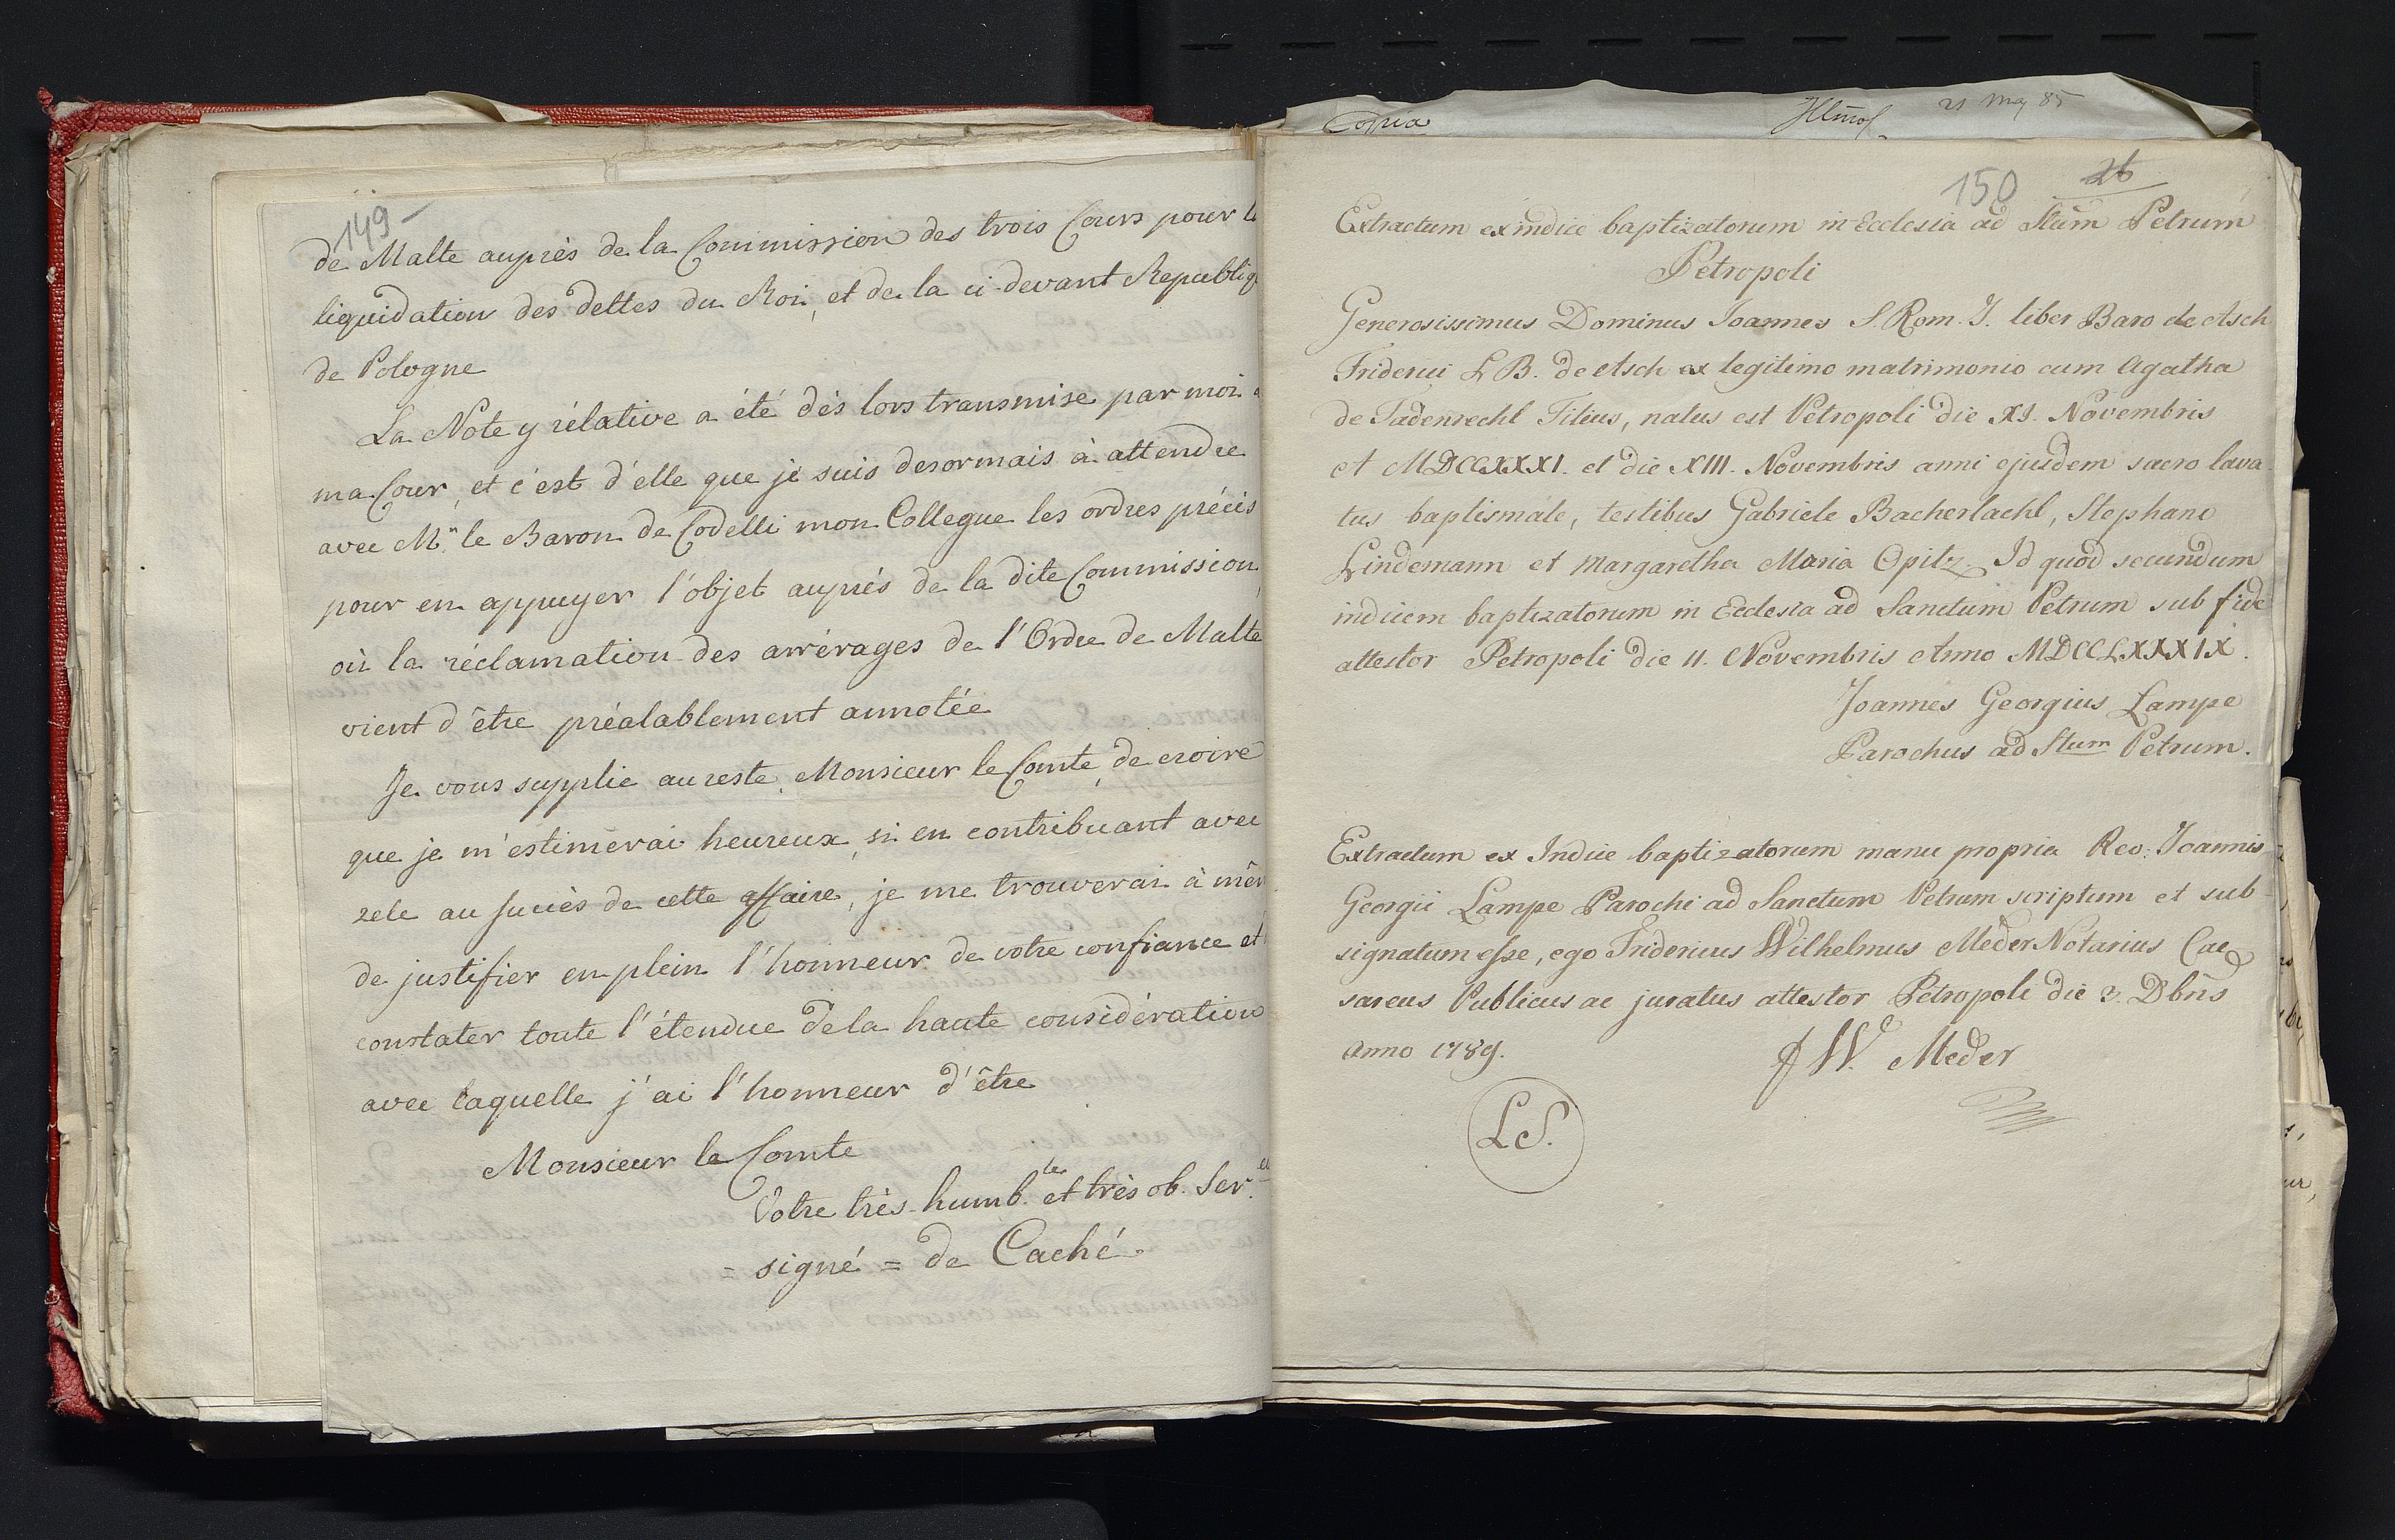 149
de Malte auprès de la Commission des trois Cours pour
liquidation des dettes du Roi, et de la ci-devant Republiq
de Pologne
La Note y rélative a été dès lors transmise par moi
ma Cour, et c'est d'elle que je suis desormais à attendre
avec Mr. le Baron de Codelli mon Collegue les ordres précis
pour en appuyer l'objet auprés de la dite Commission,
où la réclamation des arrérages de l'Ordre de Malte
vient d'être préalablement annotée
Je vous supplie au reste, Monsieur le Comte, de croire
que je m'estimerai heureux, si en contribuant avec
zele au succès de cette affaire, je me trouverai à mêm
de justifier en plein l'honneur de votre confiance et
constater toute l'étendue de la haute considération
avec laquelle j'ai l'honneur d'être
Monsieur le Comte
Votre très-humb.le et très ob. Ser.
= signé = de Caché.
Copia
21 May 85
150 26
Extractum ex indice baptizatorum in Ecclesia ad Stum Petrum
Petropoli
Generosissimus Dominus Joannes S. Rom. I. liber Baro de Asch
Friderici L B. de Asch ex legitimo matrimonio cum Agatha
de Sadenrecht Filius, natus est Petropoli die XI. Novembris
A MDCCXXXI. et die XIII. Novembris anni ejusdem sacro lava
tus baptismale, testibus Gabriele Bacherlacht, Stephano
Lindemann et Margaretha Maria Opitz. Id quod secundum
indicem baptizatorum in Ecclesia ad Sanctum Petrum sub fide
attestor Petropoli die 11. Novembris Anno MDCCLXXXIX.
Joannes Georgius Lampe
Parochus ad Stum Petrum.
Extractum ex Indice baptizatorum manu propria Rev: Joannis
Georgii Lampe Parochi ad Sanctum Petrum scriptum et sub-
signatum esse, ego Fridericus Wilhelmus Meder Notarius Cae
sareus Publicus ac juratus attestor Petropoli die 3. Dbris
Anno 1789.
F W. Meder
LS.